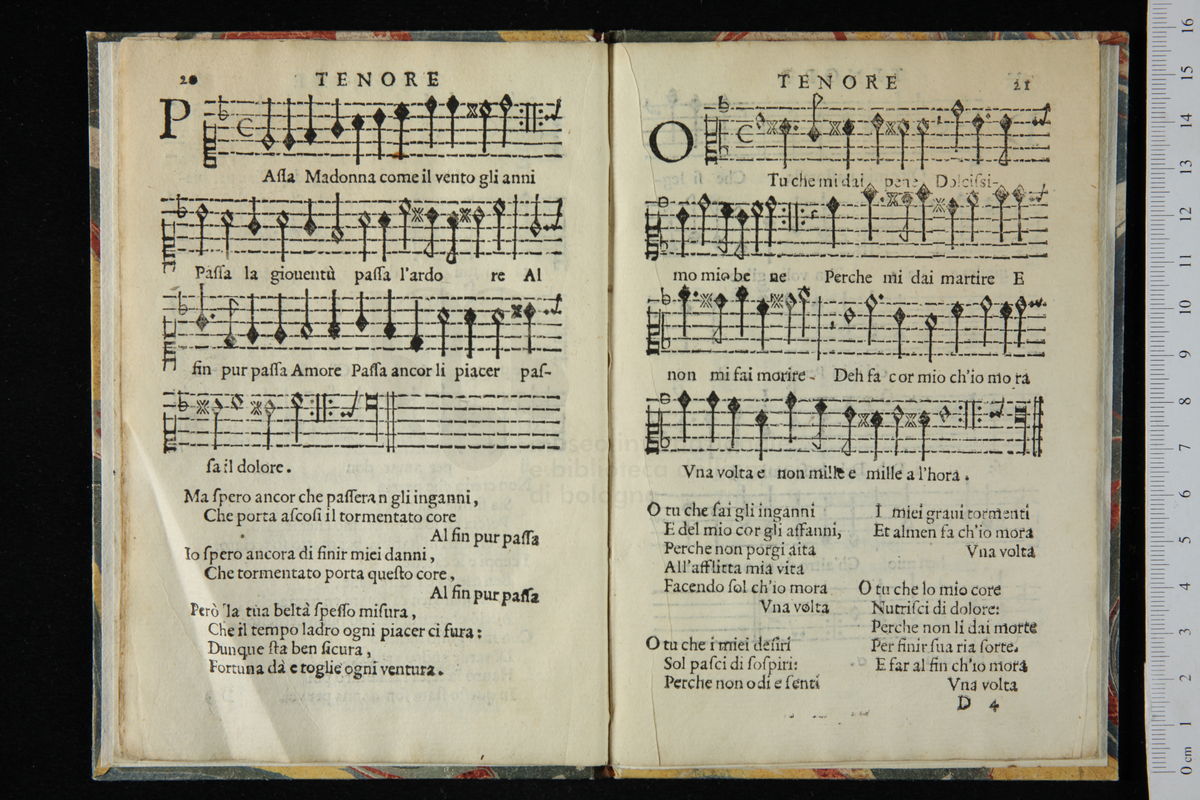 20
TENORE
P
Assa Madonna come il vento gli anni
Passa la giouentù passa l'ardo re Al
fin pur passa Amore Passa ancor li piacer pas-
sa il dolore.
Ma spero ancor che passeran gli inganni,
Che porta ascosi il tormentato core
Al fin pur passa
Io spero ancora di finir miei danni,
Che tormentato porta questo core,
Al fin pur passa
Però la tua beltà spesso misura,
Che il tempo ladro ogni piacer ci fura:
Dunque sta ben sicura,
Fortuna dà e toglie ogni ventura.
TENORE
21
O
Tu che mi dai pene Dolcissi-
mo mio be ne Perche mi dai martire E
non mi fai morire- Deh fa cor mio ch'io mo ra
Vna volta e non mille e mille a l'hora.
O tu che sai gli inganni
E del mio cor gli affanni,
Perche non porgi aita
All'afflitta mia vita
Facendo sol ch'io mora
Vna volta
O tu che i miei desiri
Sol pasci di sospiri:
Perche non odi e senti
I miei graui tormenti
Et almen fa ch'io mora
Vna volta
O tu che lo mio core
Nutrisci di dolore:
Perche non li dai morte
Per finir sua ria sorte.
E far al fin ch'io mora
Vna volta
D 4
museo in
e biblioteca
di bologna
16
15
14
13
12
11
10
9
8
7
6
5
4
3
2
1
0 cm